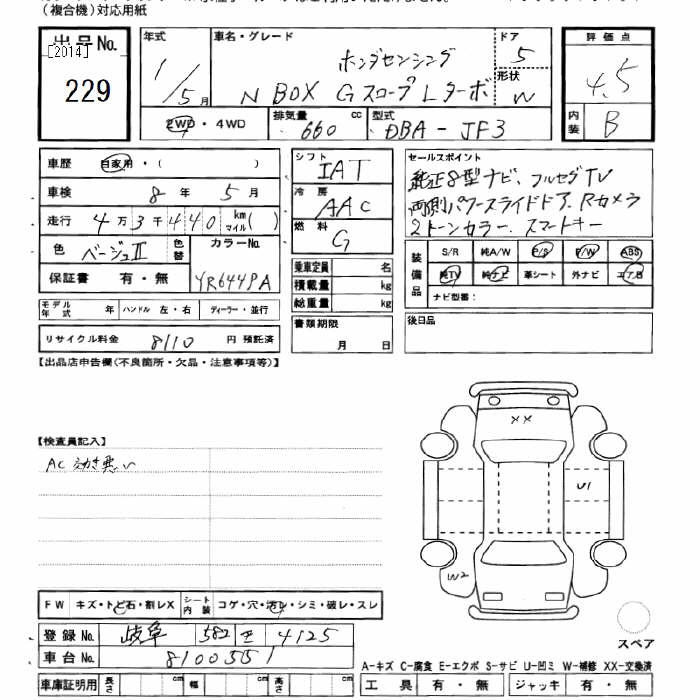 （複合機）対応用紙
出品No.
[2014]
229
年式
1/5月
車名・グレード
ホンダセンシング
N BOX GスロープLターボ
ドア
5
形状
W
評価点
4.5
内装
B
2WD・4WD
排気量 660 cc
型式 DBA-JF3
車歴 自家用・( )
車検 8年 5月
走行 4万3千440 km マイル( )
色 ベージュII 色替
カラーNo. YR644PA
保証書 有・無
シフト IAT
冷房 AAC
燃料 G
乗車定員 名
積載量 kg
総重量 kg
書類期限
月 日
セールスポイント
純正8型ナビ、フルセグTV
両側パワースライドドア、Rカメラ
2トーンカラー、スマートキー
装備品
S/R 純A/W P/S P/W ABS
純TV 純ナビ 革シート 外ナビ エアB
ナビ型番：
後日品
モデル年式 年 ハンドル 左・右 ディーラー・並行
リサイクル料金 8110 円 預託済
【出品店申告欄(不良箇所・欠品・注意事項等)】
【検査員記入】
AC 効き悪い
XX
U1
W2
スペア
FW キズ・トビ石・割レX シート内装 コゲ・穴・汚レ・シミ・破レ・スレ
登録No. 岐阜 582 そ 4125
車台No. 8100551
車庫証明用 長さ cm 幅 cm 高さ cm
A-キズ C-腐食 E-エクボ S-サビ U-凹ミ W-補修 XX-交換済
工具 有・無 ジャッキ 有・無